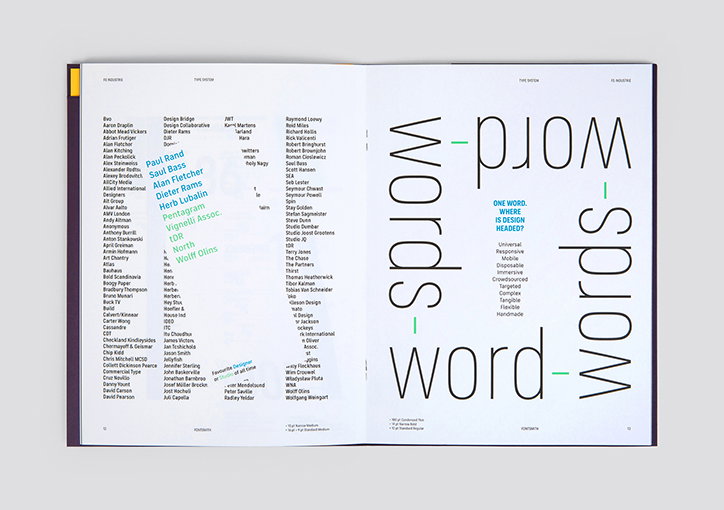 FS INDUSTRIE
TYPE SYSTEM
8vo
Aaron Draplin
Abbot Mead Vickers
Adrian Frutiger
Alan Fletcher
Alan Kitching
Alan Peckolick
Alex Steinweiss
Alexander Rodtc
Alexey Brodovitc
AllCity Media
Allied International
Designers
Alt Group
Alvar Aalto
AMV London
Andy Altman
Anonymous
Anthony Burrill
Anton Stankowski
April Greiman
Armin Hofmann
Art Chantry
Atlas
Bauhaus
Bold Scandinavia
Boogy Paper
Bradbury Thompson
Bruno Munari
Buck TV
Build
Calvert/Kinneir
Carter Wong
Cassandre
CDT
Checkland Kindleysides
Chermayeff & Geismar
Chip Kidd
Chris Mitchell MCSD
Collett Dickinson Pearce
Commercial Type
Cruz Novillo
Danny Yount
David Carson
David Pearson
Design Bridge
Design Collaborative
Dieter Rams
DJR
Hey Stu
Hoefler &
House Ind
IDEO
ITC
Itu Chaudhu
James Victore
Jan Tschichold
Jason Smith
Jellyfish
Jennifer Sterling
John Baskerville
Jonathan Barnbroo
Josef Müller Brockm
Jost Hochuli
Juli Capella
JWT
Martens
arland
Hara
witters
rman
holy Nagy
Mendelsund
Peter Saville
Radley Yeldar
Raymond Loewy
Reid Miles
Richard Hollis
Rick Valicenti
Robert Bringhurst
Robert Brownjohn
Roman Cieslewicz
Saul Bass
Scott Hansen
SEA
Seb Lester
Seymour Chwast
Seymour Powell
Spin
Stay Golden
Stefan Sagmeister
Steve Dunn
Studio Dumbar
Studio Joost Grootens
Studio JQ
tDR
Terry Jones
The Chase
The Partners
Thirst
Thomas Heatherwick
Tibor Kalman
Tobias Van Schneider
oko
lleson Design
mato
l Design
or Jackson
ockeys
rk International
n Oliver
Assoc.
st
iggins
Wally Fleckhaus
Wim Crouwel
Władysław Pluta
WNA
Wolff Olins
Wolfgang Weingart
Paul Rand
Saul Bass
Alan Fletcher
Dieter Rams
Herb Lubalin
Pentagram
Vignelli Assoc.
tDR
North
Wolff Olins
Favourite Designer
or Studio of all time
12
FONTSMITH
– 10 pt Narrow Medium
TYPE SYSTEM
FS INDUSTRIE
word–
words–
word–
words–
ONE WORD.
WHERE
IS DESIGN
HEADED?
Universal
Responsive
Mobile
Disposable
Immersive
Crowdsourced
Targeted
Complex
Tangible
Flexible
Handmade
– 180 pt Condensed Thin
FONTSMITH
13